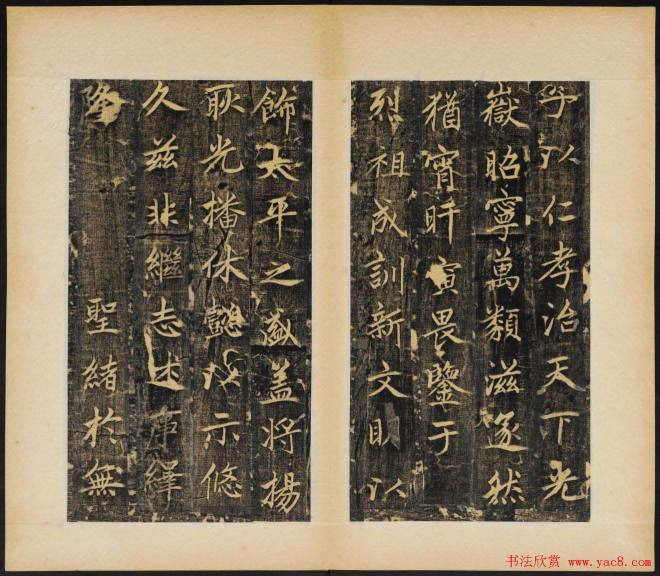 子以仁孝治天下光
嶽昭寧萬類滋遂然
猶宵旰寅畏鑒于
烈祖成訓新文明以
飾太平之盛盖將揚
耿光播休懿以示悠
久茲非繼志述事繹
隆 聖緒於無
书法欣赏 www.yac8.com